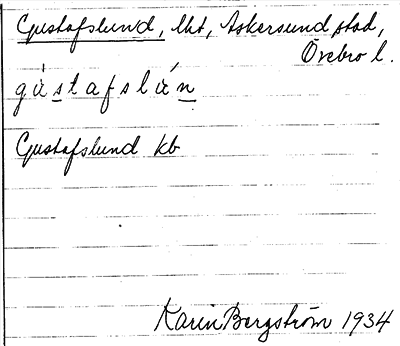 Gustafslund, lht, Askersund stad,
Örebro l.
gu̇stafslu̇́n
Gustafslund kb
Karin Bergström 1934